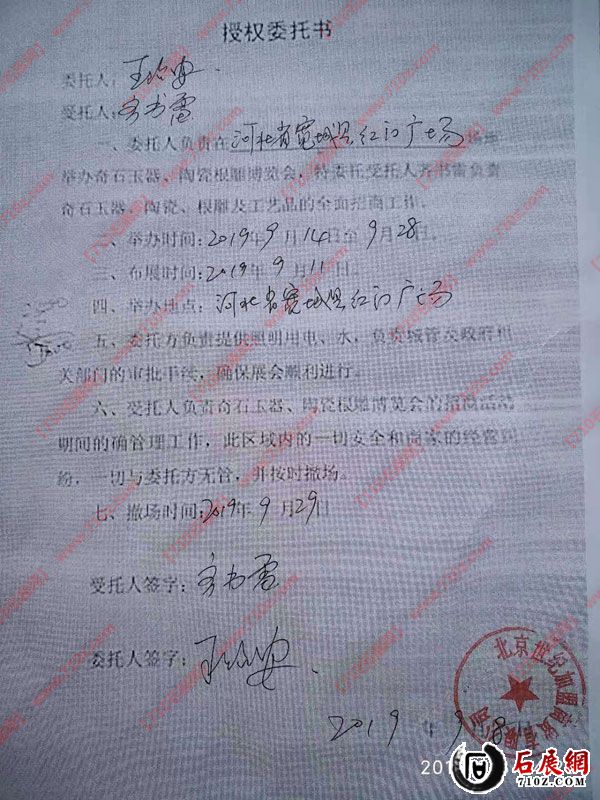 授权委托书
委托人:王
受托人:齐书雷
一、委托人负责在河北省宽城县红门广场
举办奇石玉器、陶瓷根雕博览会,特委托受托人齐书雷负责
奇石玉器、陶瓷、根雕及工艺品的全面招商工作。
二、举办时间:2019年9月14日至9月28日。
三、布展时间:2019年9月11日。
四、举办地点:河北省宽城县红门广场
五、委托方负责提供照明用电、水,负责城管及政府相
关部门的审批手续,确保展会顺利进行。
六、受托人负责奇石玉器、陶瓷根雕博览会的招商活动
期间的确管理工作,此区域内的一切安全和商家的经营纠
纷,一切与委托方无管,并按时撤场。
七、撤场时间:2019年9月29日
受托人签字:齐书雷
委托人签字:王
2019年9 8
北京世纪加盟商贸有限公司
201
石展網
71OZ.COM